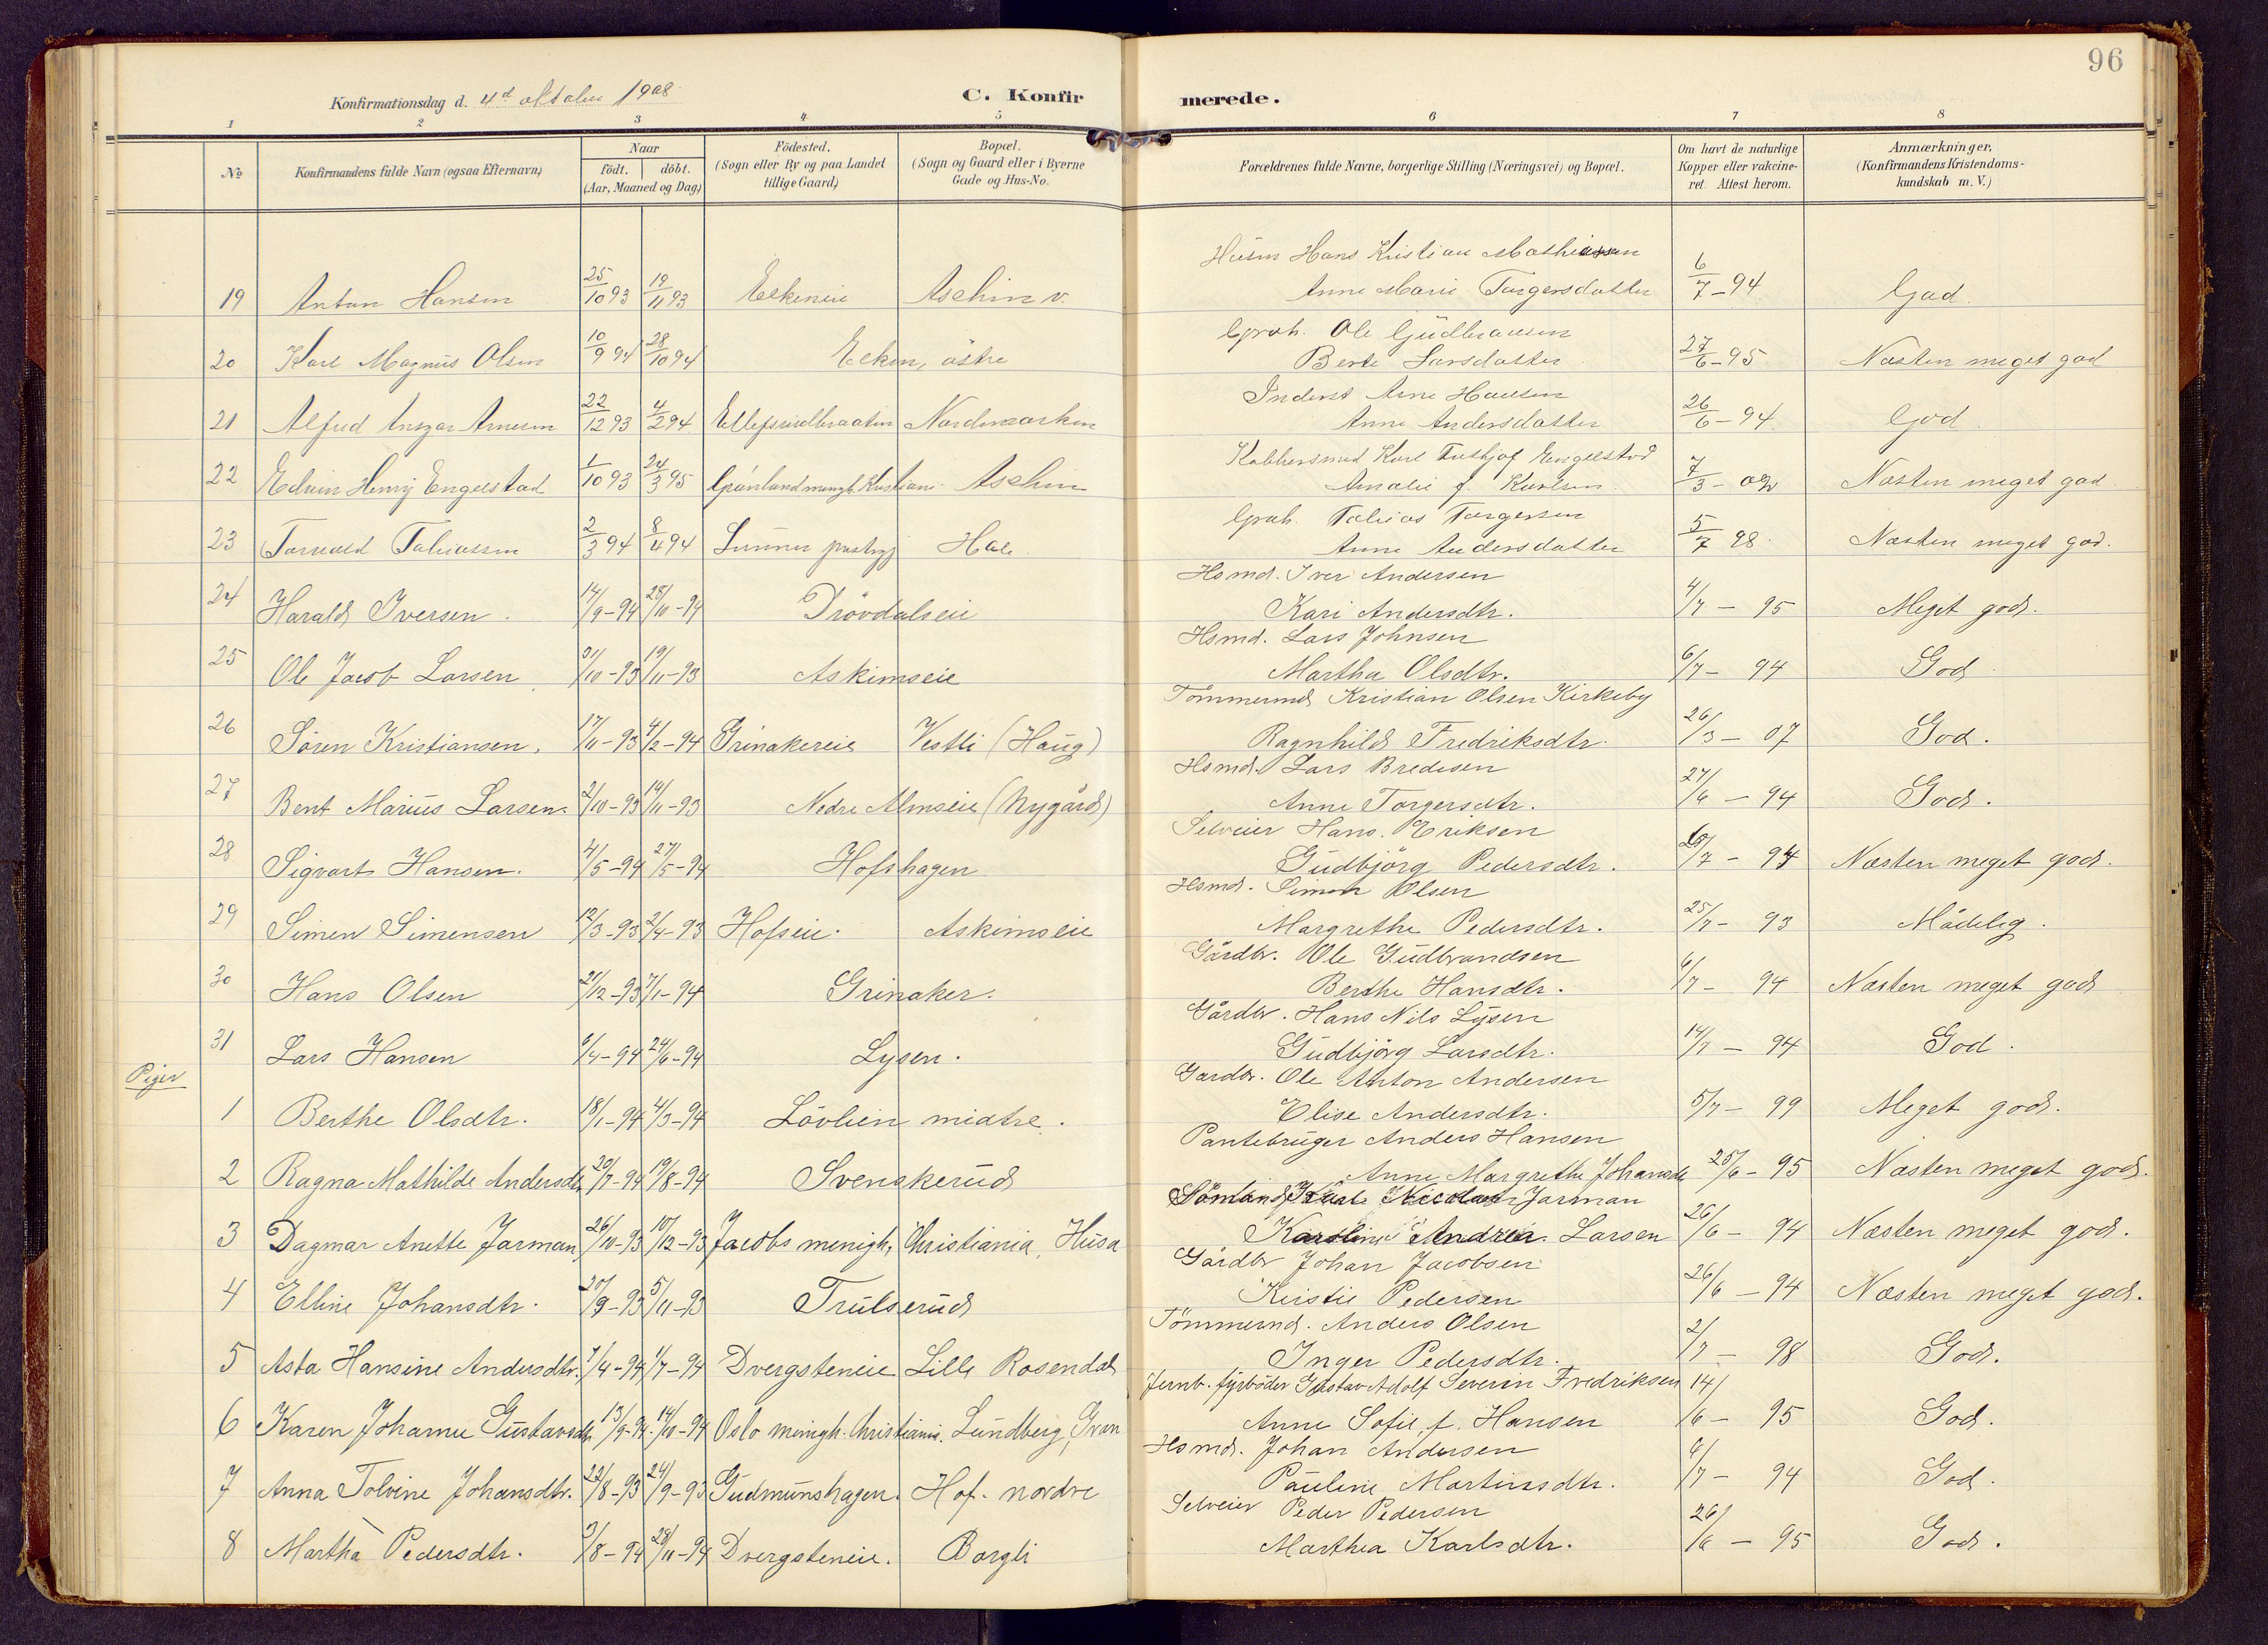 96
Konfirmationsdag d. 4d oktober 1908.
C. Konfirmerede.
1 2 3 4 5 6 7 8
No
Konfirmandens fulde Navn (ogsaa Efternavn)
Naar
födt. döbt.
(Aar, Maaned og Dag)
Födested.
(Sogn eller By og paa Landet
tillige Gaard)
Bopæl.
(Sogn og Gaard eller i Byerne
Gade og Hus-No.
Forældrenes fulde Navne, borgerlige Stilling (Næringsvei) og Bopæl.
Om havt de naturlige
Kopper eller vakcine-
ret. Attest herom.
Anmærkninger.
(Konfirmandens Kristendoms-
kundskab m. V.)
Husm Hans Kristian Mathiassen
19 Anton Hansen 25/10 93 19/11 93 Askim v. Anne Marie Torgersdatter 6/7-94 God.
Grdb. Ole Gudbransen
20 Karl Magnus Olsen 10/9 94 28/10 94 östre Berte Larsdatter 27/6-95 Næsten meget god
Inderst Arne Hansen
21 Alfred Ansgar Arnesen 22/12 93 4/2 94 Nordmarken Anne Andersdatter 26/6-94 God
Kobbersmed Karl Engelstad
22 Edvin Henry Engelstad 1/10 93 24/3 95 Grönland mengh. Kristian- Askim Amalie f. Karlsen 7/3-02 Næsten meget god
Grdb. Tobias Torgersen
23 Torvald Tobiassen 2/3 94 8/4 94 Lunner Hole Anne Andersdatter 5/7 98 Næsten meget god.
Hsmd. Iver Andersen
24 Harald Iversen. 14/9-94 25/11-94 Prövdalseie Kari Andersdtr. 4/7-95 Meget god.
Hsmd. Lars Johnsen
25 Ole Jacob Larsen 31/10-93 19/11-93 Askimseie Martha Olsdtr. 6/7-94 God
Tömmermd Kristian Olsen Kirkeby
26 Sören Kristiansen. 17/11-93 4/2-94 Grinakereie Vestli (Haug) Ragnhild Fredriksdtr. 26/3-07 God.
Hsmd. Lars Bredesen
27 Bent Marius Larsen. 2/10-93 19/11-93 Nedre Almseie (Nygård) Anne Torgersdtr. 27/6-94 God.
Selveier Hans Eriksen
28 Sigvart Hansen. 4/5-94 27/5-94 Hofshagen Gudbjörg Pedersdtr. Næsten meget god.
Hsmd. Simen Olsen
29 Simen Simensen 12/3-93 2/4-93 Hofseie. Askimseie Margrethe Pedersdtr. 25/7-93 Mådelig.
Gårdbr. Ole Gudbrandsen
30 Hans Olsen 21/12-93 7/1-94 Grinaker. Berthe Hansdtr. 6/7-94 Næsten meget god
Gårdbr. Hans Nils Lysen
31 Lars Hansen 6/4-94 24/6-94 Lysen. Gudbjörg Larsdtr. 14/7-94 God.
Piger
Gårdbr. Ole Anton Andersen
1 Berthe Olsdtr. 18/1-94 4/3-94 Lövlien midtre. Elise Andersdtr. 5/7-99 Meget god.
Pantebruger Anders Hansen
2 Ragna Mathilde Andersdtr 20/7-94 19/8-94 Svenskerud Anne Margrethe Johansdtr 25/6-95 Næsten meget god.
Sömand Karl Nicolai Jarman
3 Dagmar Anette Jarman 26/10-93 10/12-93 Jacobs menigh, Christiania, Husa Karoline Andrea Larsen 26/6-94 Næsten meget god.
Gårdbr Johan Jacobsen
4 Elline Johansdtr. 20/9-93 5/11-93 Trulserud Kirstie Pedersen 26/6-94 Næsten meget god.
Tömmermd. Anders Olsen
5 Asta Hansine Andersdtr. 7/4-94 1/7-94 Dvergsteneie Lille Rosendal Inger Pedersdtr. 2/7-98 God.
Jernb. fyrböder Gustav Adolf Severin Fredriksen
6 Karen Johanne Gustavsdtr. 13/9-94 14/10-94 Oslo menigh. Christiania. Lundberg, Gran Anne Sofie f. Hansen 14/6-95 God.
Hsmd. Johan Andersen
7 Anna Tolvine Johansdtr. 22/8-93 24/9-93 Gudmunshagen. Hof. nordre Pauline Martinsdtr. 6/7-94 God.
Selveier Peder Pedersen
8 Martha Pedersdtr. 3/8-94 28/11-94 Dvergsteneie. Borgli Marthea Karlsdtr. 26/6-95 God.